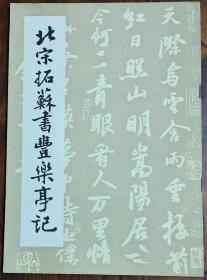 北宋拓蘇書豐樂亭記
天際烏雲含雨重樓前
紅日照山明嵩陽居士
今何在青眼看人萬里情
夢中詩也僕